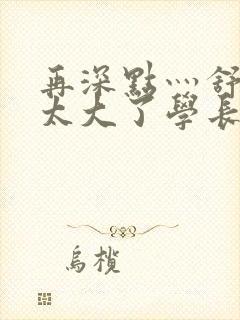 再深點灬舒
太大了學長
烏欖